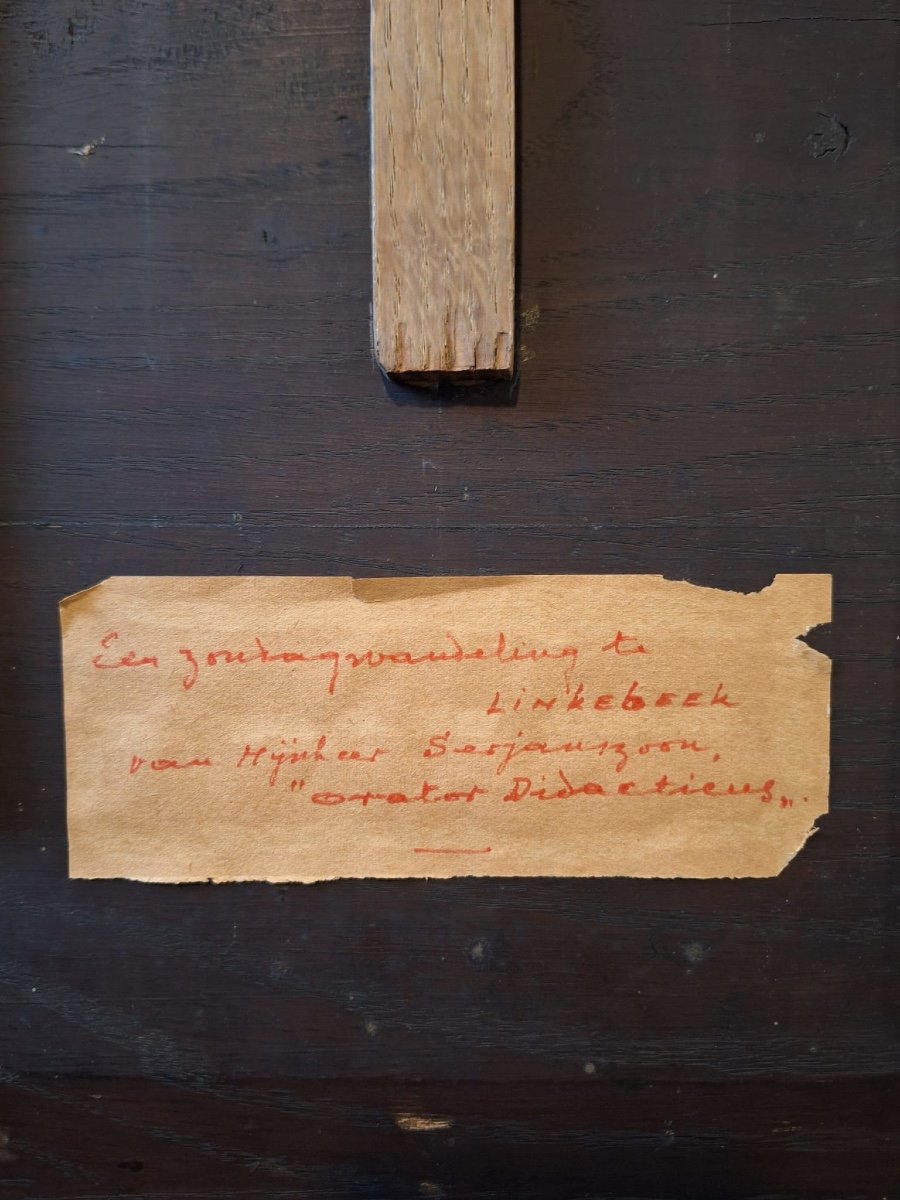 Een zondagswandeling te
LINKEBEEK
van Mijnheer Serjanszoon,
"Orator Didacticus„.